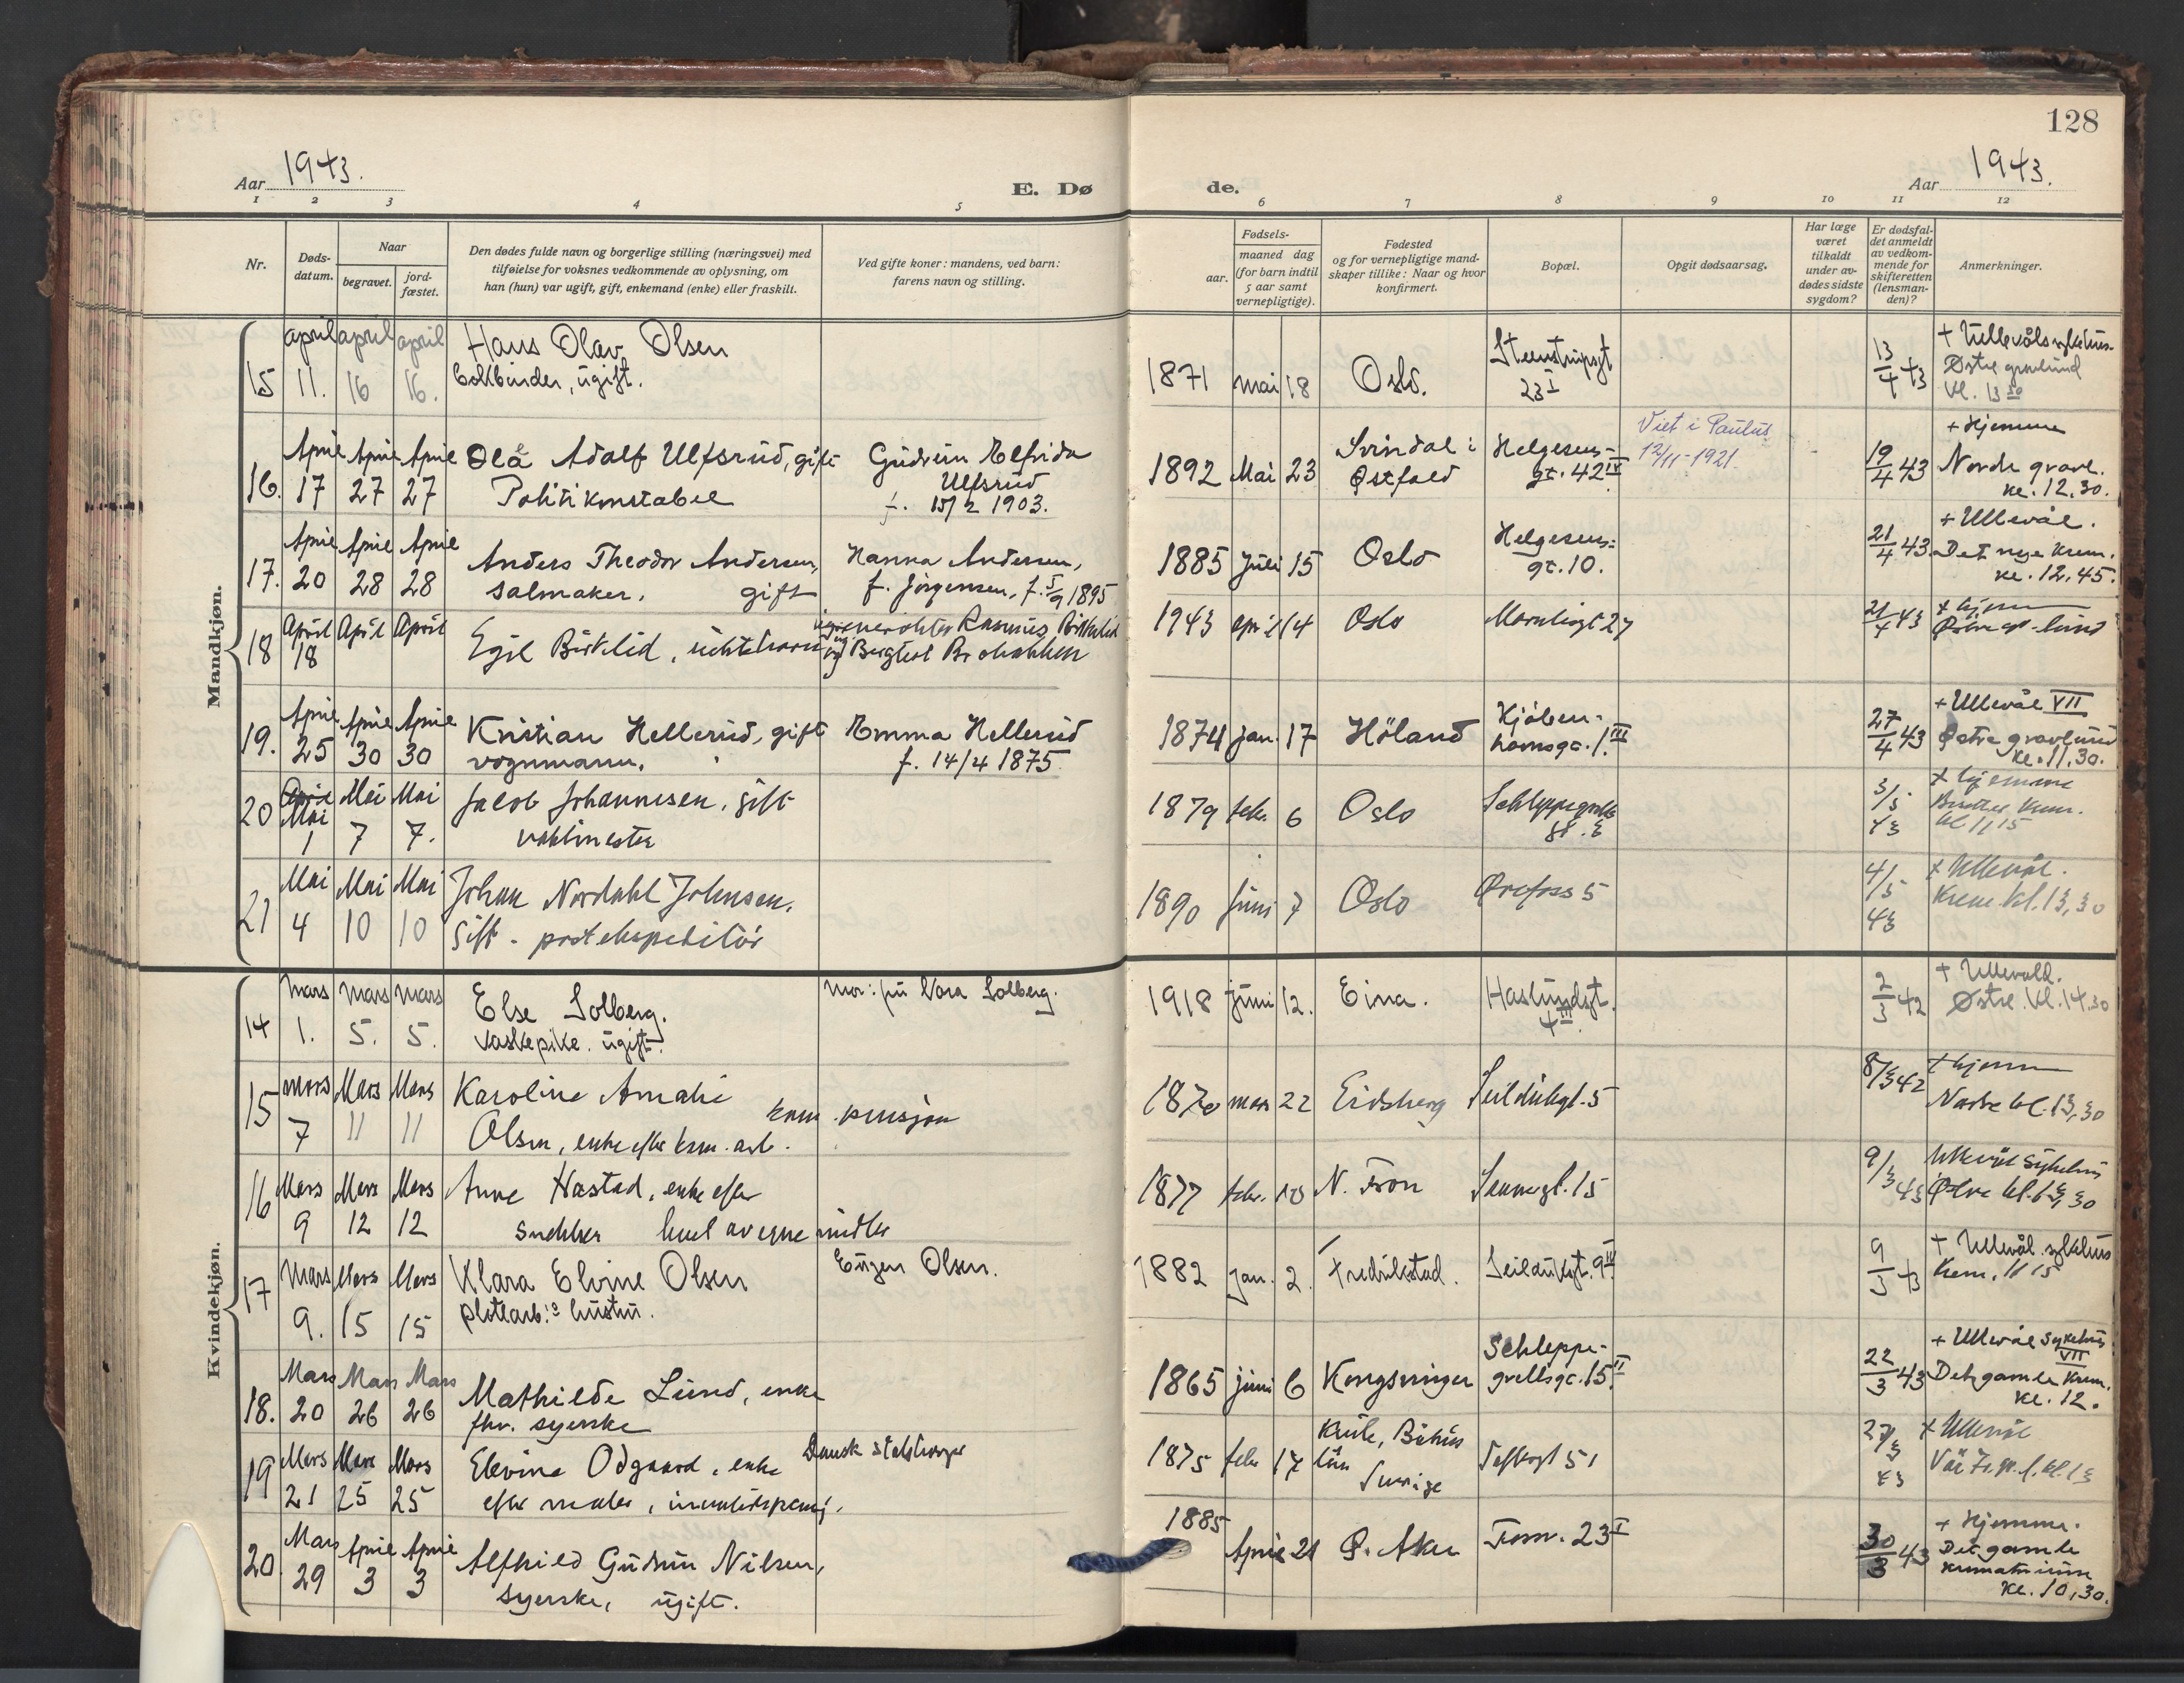 128
Aar 1943.
E. Døde.
Aar 1943.
1 2 3 4 5 6 7 8 9 10 11 12
Nr.
Døds-
datum.
Naar
begravet.
jord-
fæstet.
Den dødes fulde navn og borgerlige stilling (næringsvei) med
tilføielse for voksnes vedkommende av oplysning, om
han (hun) var ugift, gift, enkemand (enke) eller fraskilt.
Ved gifte koner: mandens, ved barn:
farens navn og stilling.
Fødsels-
aar.
maaned dag
(for barn indtil
5 aar samt
vernepligtige).
Fødested
og for vernepligtige mand-
skaper tillike: Naar og hvor
konfirmert.
Bopæl.
Opgit dødsaarsag.
Har læge
været
tilkaldt
under av-
dødes sidste
sygdom?
Er dødsfal-
det anmeldt
av vedkom-
mende for
skifteretten
(lensman-
den)?
Anmerkninger.
Mandkjøn.
april april april Hans Olav Olsen
15 11. 16 16. ugift.
1871 mai 18 Oslo.
23 I
13/4 43
+ Ullevåls sykehus
Østre gravlund
kl. 13 30
April April April Ola Adolf Ulfsrud, gift
16. 17 27 27 Politikonstabel
Gudrun Elfrida
Ulfsrud
f. 15/2 1903.
1892 Mai 23 Svindal i
Østfold
Helgesens-
gt. 42 IV
Viet i Paulus
12/11-1921.
19/4 43
+ Hjemme
Nordre gravl.
kl. 12,30.
April April April Anders Theodor Andersen,
17. 20 28 28 salmaker, gift
Hanna Andersen,
f. Jørgensen, f. 5/9 1895
1885 Juli 15 Oslo
Helgesens-
gt. 10.
21/4 43
+ Ullevål.
Det nye krem.
kl. 12,45.
April April April
18 18 Egil Birkelid, uekte barn
Rasmus Birkelid
og Bergliot
1943 april 14 Oslo
27
21/4 43
+ hjemme
Østre gr.lund
April April April Kristian Hellerud, gift
19. 25 30 30 vognmann.
Emma Hellerud
f. 14/4 1875.
1874 jan. 17 Höland
Kjöben-
havnsgt. 1. III
27/4 43
+ Ullevål VII
Østre gravlund
kl. 11,30.
April
Mai Mai Mai Jacob Johannesen, gift
20 1 7 7. vaktmester
1879 febr. 6 Oslo
3/5 43
+ hjemme
krem.
kl 11 15
Mai Mai Mai Johan Nordahl Johnsen,
21 4 10 10 gift - postekspeditör
1890 Juni 7 Oslo
Örefoss 5
4/5 43
+ Ullevål.
Krem. kl. 13,30
Kvindekjøn.
mars mars mars Else Solberg.
14 1. 5. 5. Vaskepike. ugift.
Mor: fru Vara Solberg.
1918 juni 12. Eina.
Haslundgt.
4 III
2/3 42
+ Ullevål.
Østre. kl. 14.30
mars Mars Mars Karoline Amalie
15 7 11 11 Olsen, enke efter kom. arb. kom. pensjon
1870 mars 22 Eidsberg
Seildukgt. 5
8/3 42
+ hjemme
Nordre kl. 13,30
Mars Mars Mars Anne Hastad, enke efter
16 9 12 12 snekker levet av egne midler
1877 febr. 10 N. Fron
15
9/3 43
Ullevål Sykehus
Østre kl. 13,30
Mars Mars Mars Klara Elvine Olsen
17 9. 15 15 hustru.
Eugen Olsen.
1882 jan. 2. Fredrikstad.
Seildukgt. 9 IV
9/3 43
+ Ullevål sykehus
Krem. 11 15
Mars Mars Mars Mathilde Lund, enke
18. 20 26 26 fhv. syerske
1865 juni 6 Kongsvinger
Schleppe-
grellsgt. 15 II
22/3 43
+ Ullevål Sykehus
VII
Det gamle krem.
kl. 12.
Mars Mars Mars Elevine Odgaard, enke
19 21 25 25 efter maler,
Dansk statsborger
1875 febr 17
län
Sverige
Toftesgt 51
+ Ullevål
Mars April April Alfhild Gudrun Nilsen,
20. 29 3 3 syerske, ugift.
1885 April 21 Ø. Aker
Fossv. 23 I
30/3 43
+ Hjemme.
Det gamle
krematorium
kl. 10,30.